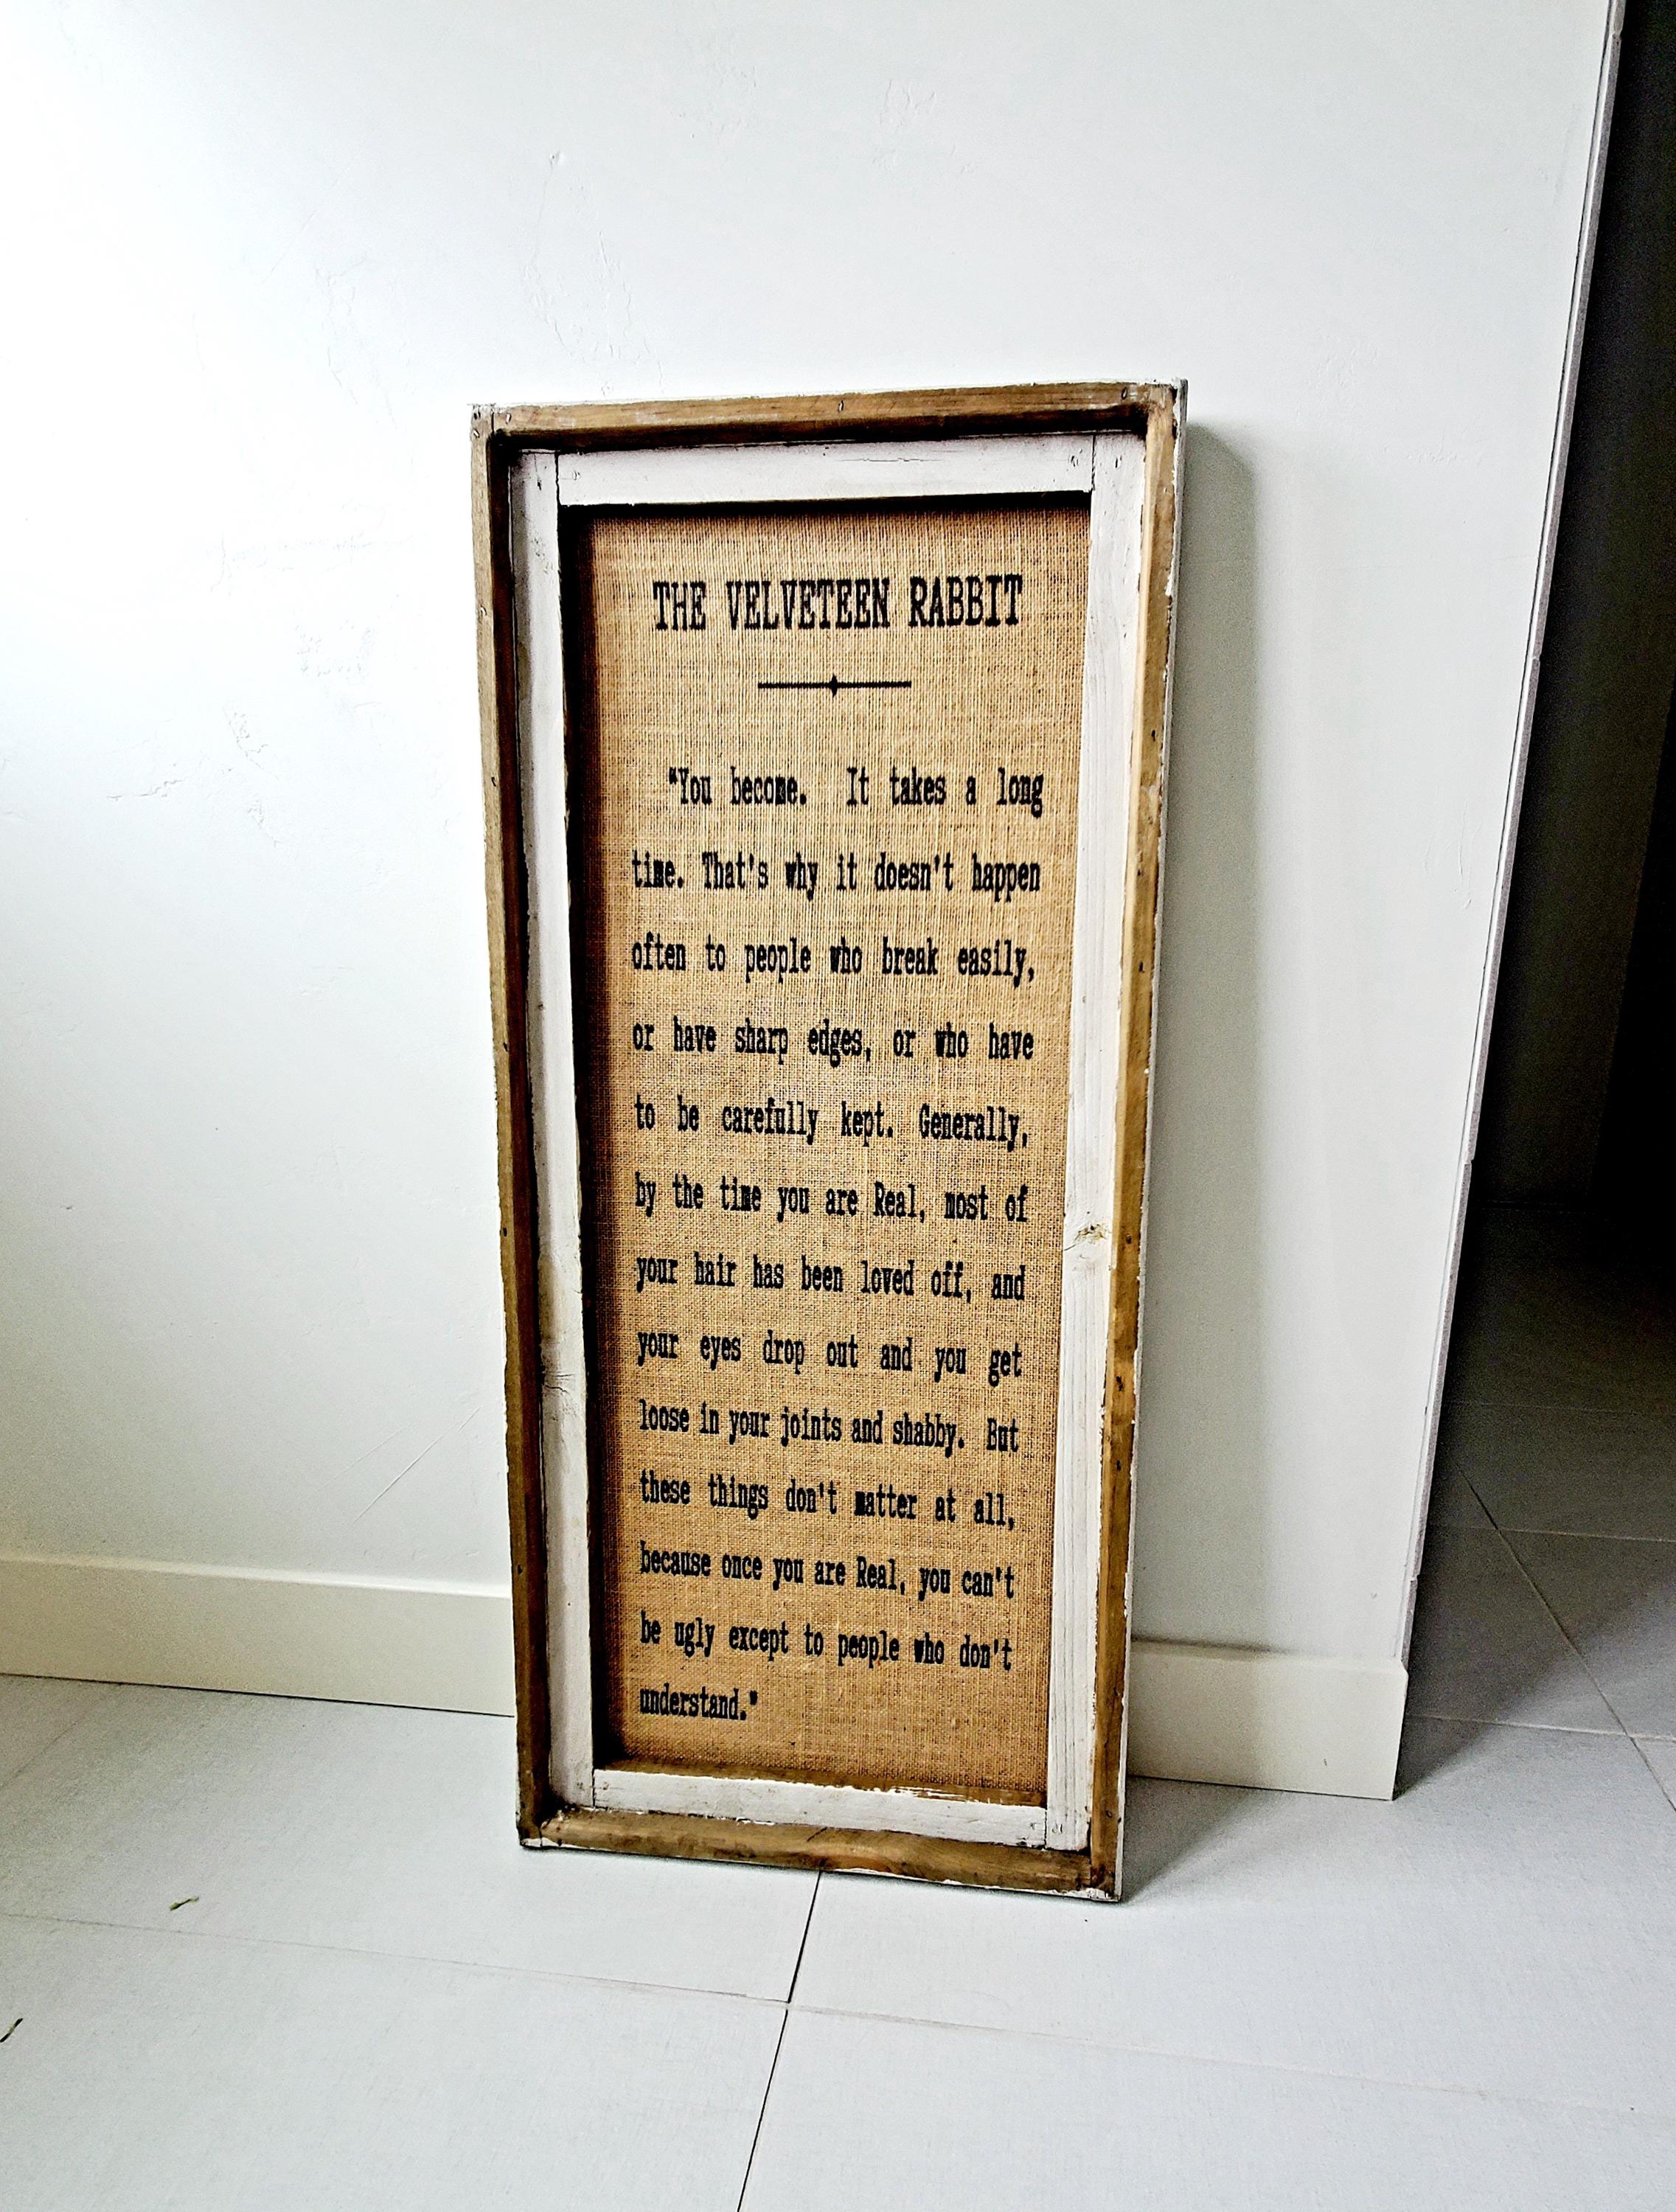 THE VELVETEEN RABBIT
"You become. It takes a long
time. That's why it doesn't happen
often to people who break easily,
or have sharp edges, or who have
to be carefully kept. Generally,
by the time you are Real, most of
your hair has been loved off, and
your eyes drop out and you get
loose in your joints and shabby. But
these things don't matter at all,
because once you are Real, you can't
be ugly except to people who don't
understand."